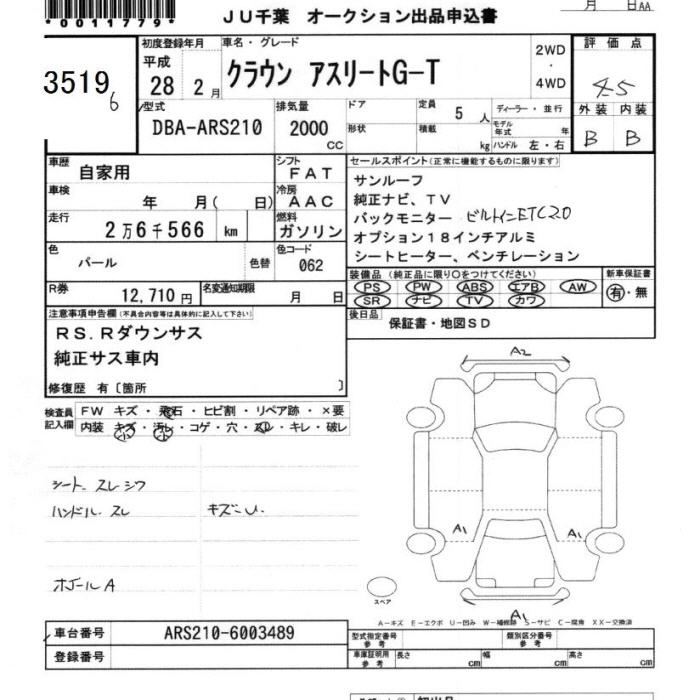 *0011779*
月 日AA
JU千葉 オークション出品申込書
初度登録年月
平成
28 2月
車名・グレード
クラウン アスリートG-T
2WD
・
4WD
評価点
4.5
外装 内装
B B
35196
型式
DBA-ARS210
排気量
2000
CC
ドア
形状
定員 5 人
積載 kg
ディーラー・並行
モデル年式 年
ハンドル 左・右
車歴 自家用
シフト
FAT
車検 年 月( 日)
冷房
AAC
走行 2万6千566 km
燃料
ガソリン
色 パール 色替
色コード
062
R券 12,710円
名変通知期限 月 日
セールスポイント(正常に機能するものに限ります)
サンルーフ
純正ナビ、TV
バックモニター ビルトインETC2.0
オプション18インチアルミ
シートヒーター、ベンチレーション
装備品(純正品に限り○をつけてください)
PS PW ABS エアB AW
SR ナビ TV カワ
新車保証書
有・無
後日品
保証書・地図SD
注意事項申告欄(不具合内容等は具体的に記入して下さい)
RS.Rダウンサス
純正サス車内
修復歴 有〔箇所 〕
検査員記入欄
FW キズ・飛石・ヒビ割・リペア跡・×要
内装 キズ・汚レ・コゲ・穴・スレ・キレ・破レ
シート スレシワ
ハンドル スレ
キズ U
ホイールA
A2
A1
A1
A1
スペア
A-キズ E-エクボ U-凹み W-補修跡 S-サビ C-腐食 XX-交換済
車台番号 ARS210-6003489
登録番号
型式指定番号
参考
類別区分番号
参考
車庫証明用
参考
長さ cm 幅 cm 高さ cm